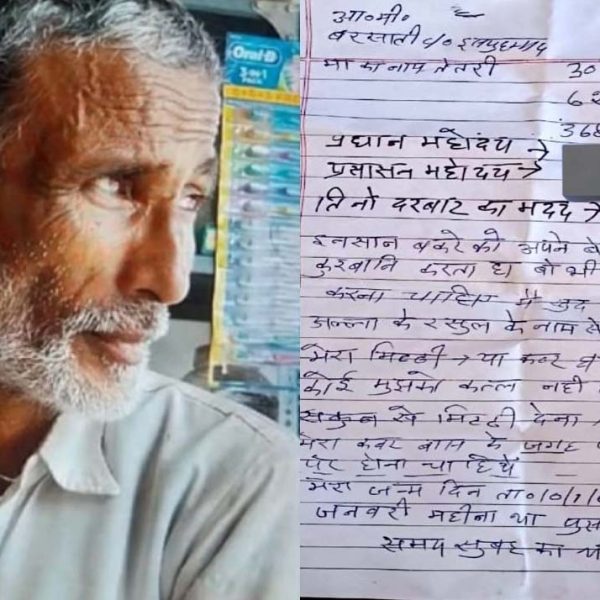 Oral-B
3 in 1
PACK
आ०मी०
बरसाती c/o
मा का नाम तेतरी 30
62
368
प्रधान महोदय →
प्रसासन महोदय →
तिनो दरबार का मदद →
इनसान बकरे को अपने बे
कुरबानि करता है वो भी
करना चाहिए मै खुद
अल्ला के रसुल के नाम से
मेरा मिट्टी → या कबर
कोई मुझको कत्ल नही
सकुन से मिटटी देना
मेरा कबर बास के जगह
पर होना चाहिये
मेरा जन्म दिन ता०
जनवरी महीना था
समय सुबह का